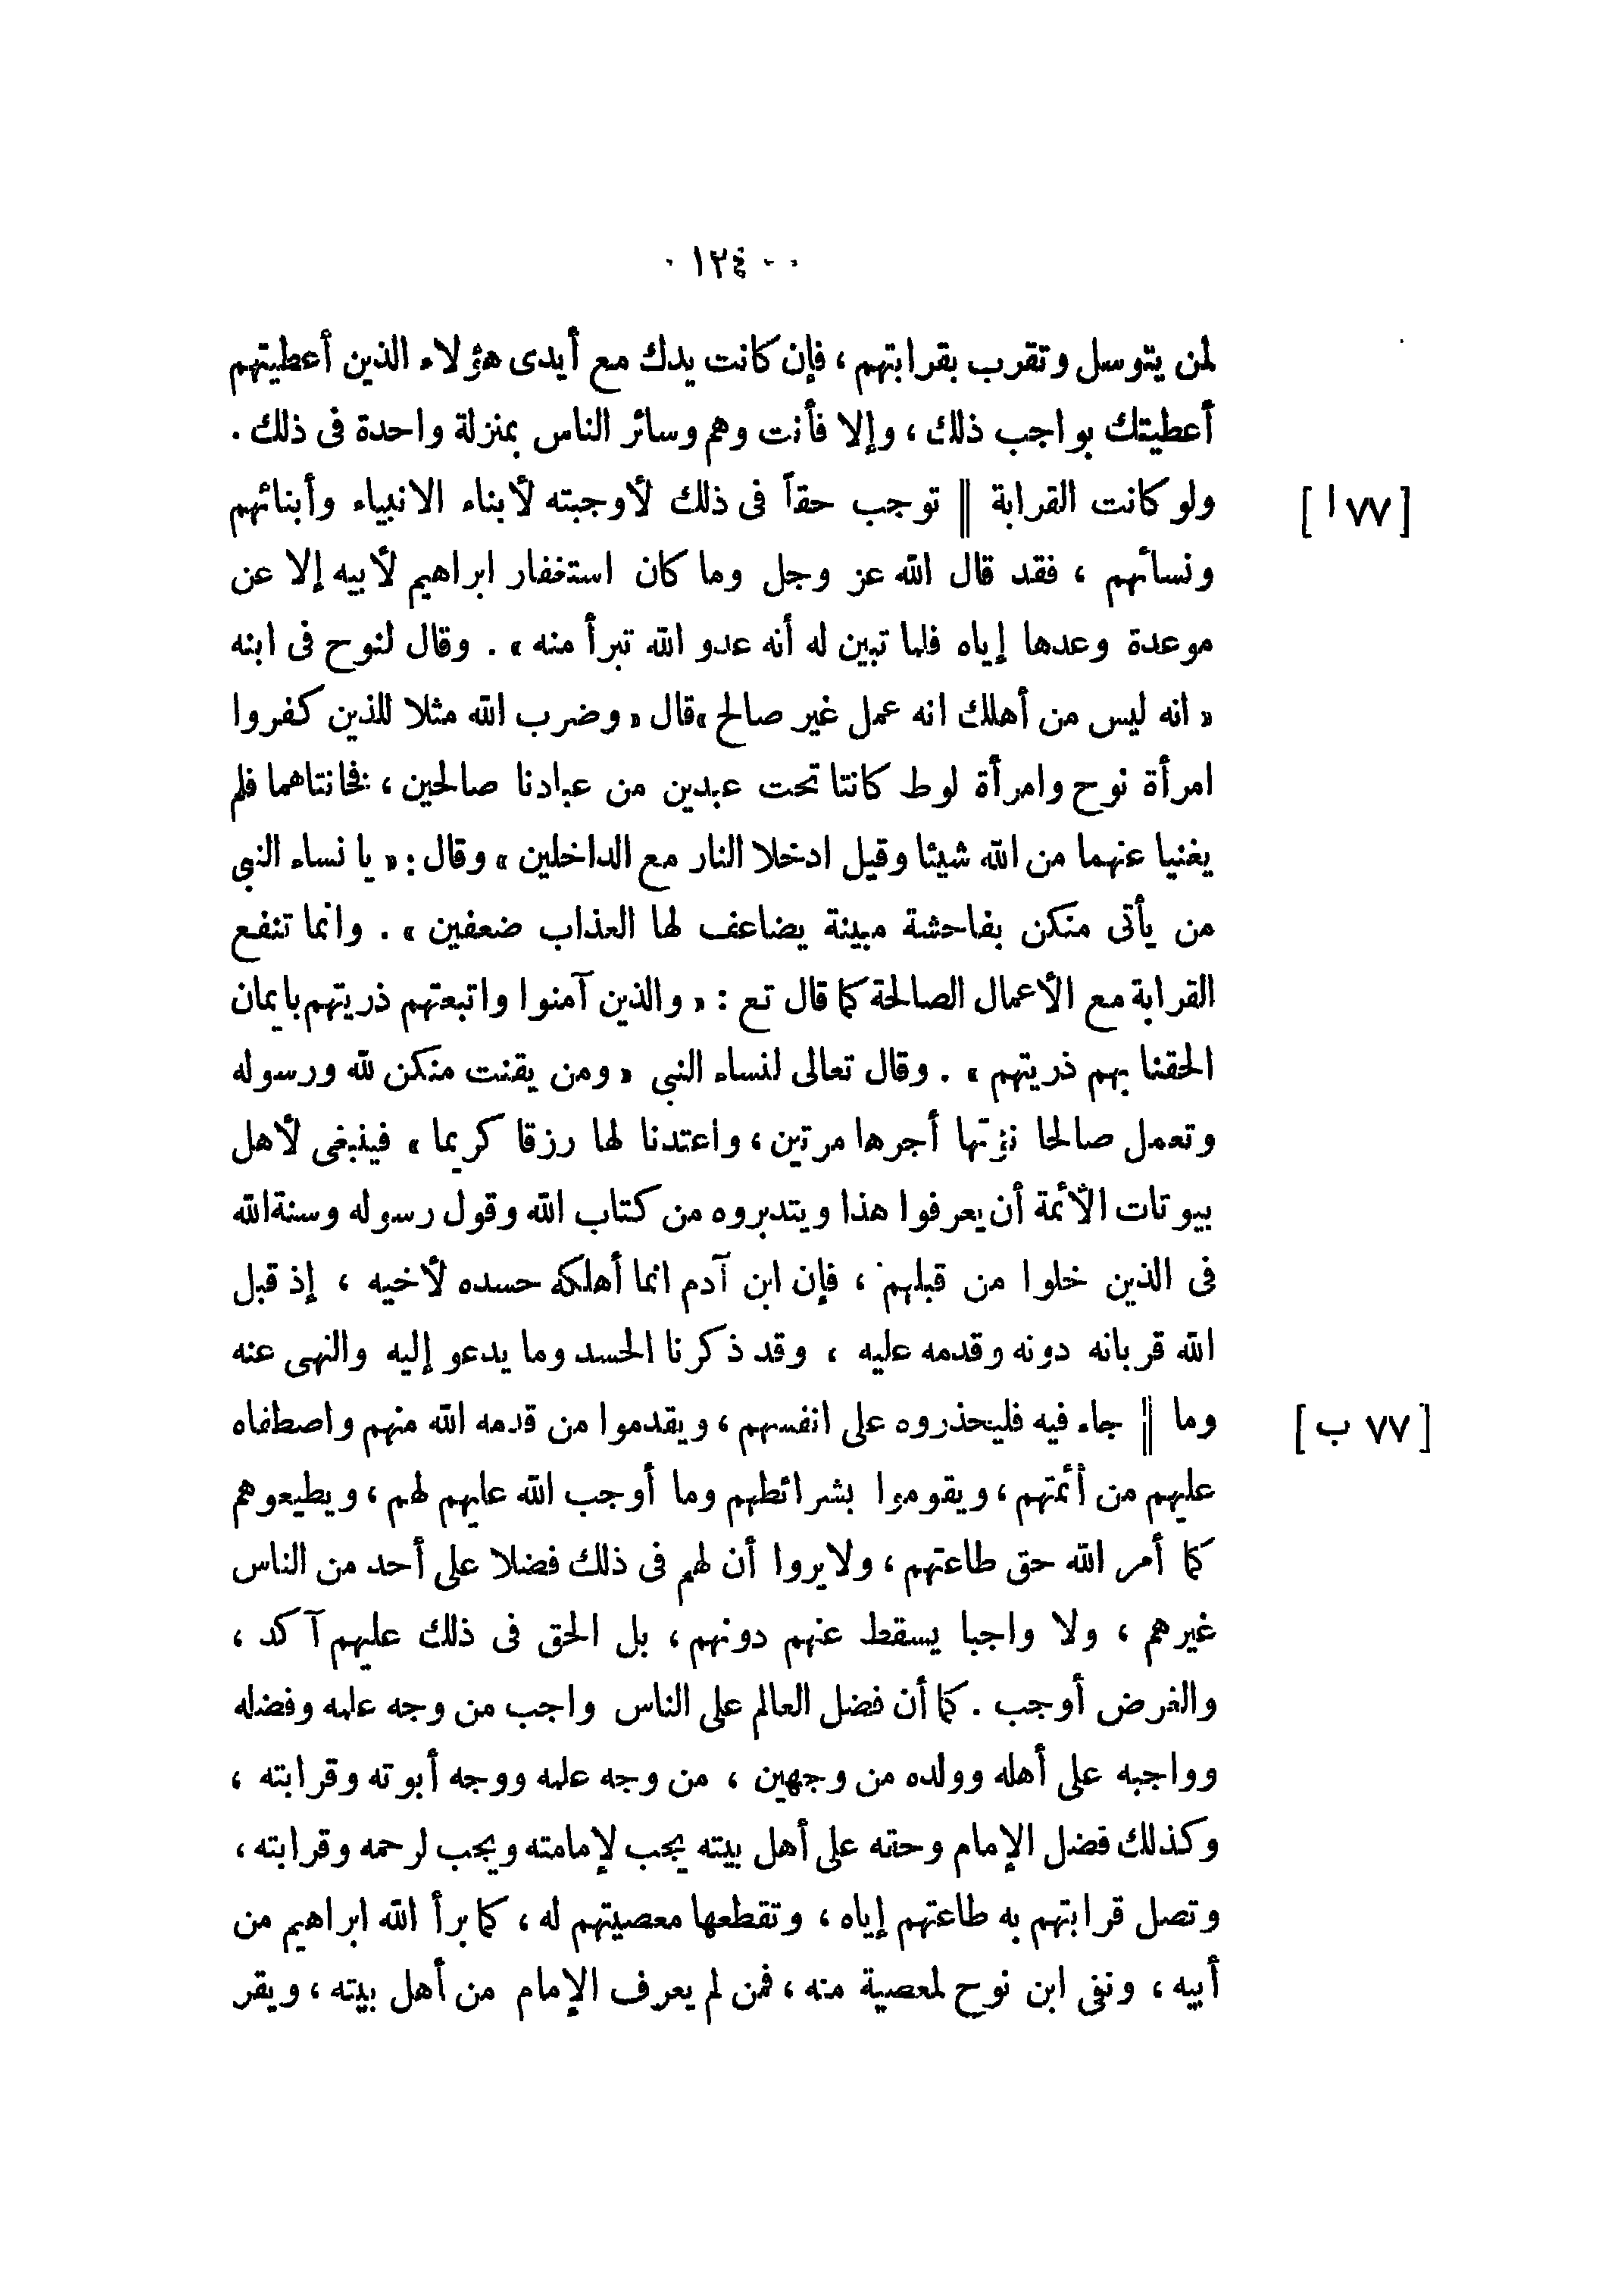 ١٢٤
لمن يتوسل وتقرب بقرابتهم ، فإن كانت يدك مع أيدى هؤلاء الذين أعطيتهم
أعطيتك بواجب ذلك ، وإلا فأنت وهم وسائر الناس بمنزلة واحدة فى ذلك .
ولو كانت القرابة || توجب حقاً فى ذلك لأوجبته لأبناء الانبياء وأبنائهم [٧٧ ا]
ونسائهم ، فقد قال الله عز وجل وما كان استغفار ابراهيم لأبيه إلا عن
موعدة وعدها إياه فلما تبين له أنه عدو الله تبرأ منه » . وقال لنوح فى ابنه
« انه ليس من أهلك انه عمل غير صالح »قال « وضرب الله مثلا للذين كفروا
امرأة نوح وامرأة لوط كانتا تحت عبدين من عبادنا صالحين ، فخانتاهما فلم
يغنيا عنهما من الله شيئا وقيل ادخلا النار مع الداخلين » وقال : « يا نساء النبى
من يأتى منكن بفاحشة مبينة يضاعف لها العذاب ضعفين » . وانما تنفع
القرابة مع الأعمال الصالحة كما قال تع : « والذين آمنوا واتبعتهم ذريتهم بايمان
الحقنا بهم ذريتهم » . وقال تعالى لنساء النبى « ومن يقنت منكن لله ورسوله
وتعمل صالحا نؤتها أجرها مرتين ، واعتدنا لها رزقا كريما » فينبغى لأهل
بيوتات الأئمة أن يعرفوا هذا ويتدبروه من كتاب الله وقول رسوله وسنة الله
فى الذين خلوا من قبلهم ، فإن ابن آدم انما أهلكه حسده لأخيه ، إذ قبل
الله قربانه دونه وقدمه عليه ، وقد ذكرنا الحسد وما يدعو إليه والنهى عنه
وما || جاء فيه فليحذروه على انفسهم ، ويقدموا من قدمه الله منهم واصطفاه [٧٧ ب]
عليهم من أئمتهم ، ويقوموا بشرائطهم وما أوجب الله عليهم لهم ، ويطيعوهم
كما أمر الله حق طاعتهم ، ولا يروا أن لهم فى ذلك فضلا على أحد من الناس
غيرهم ، ولا واجبا يسقط عنهم دونهم ، بل الحق فى ذلك عليهم آكد ،
والفرض أوجب . كما أن فضل العالم على الناس واجب من وجه علمه وفضله
وواجبه على أهله وولده من وجهين ، من وجه علمه ووجه أبوته وقرابته ،
وكذلك فضل الإمام وحقه على أهل بيته يجب لإمامته ويجب لرحمه وقرابته ،
وتصل قرابتهم به طاعتهم إياه ، وتقطعها معصيتهم له ، كما برأ الله ابراهيم من
أبيه ، ونفى ابن نوح لمعصية منه ، فمن لم يعرف الإمام من أهل بيته ، ويقر